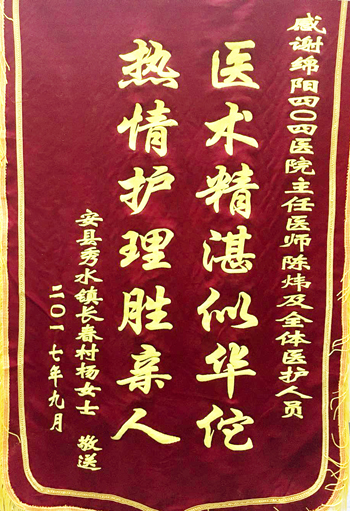 感谢绵阳四〇四医院主任医师陈炜及全体医护人员
医术精湛似华佗
热情护理胜亲人
安县秀水镇长春村杨女士 敬送
二〇一七年九月